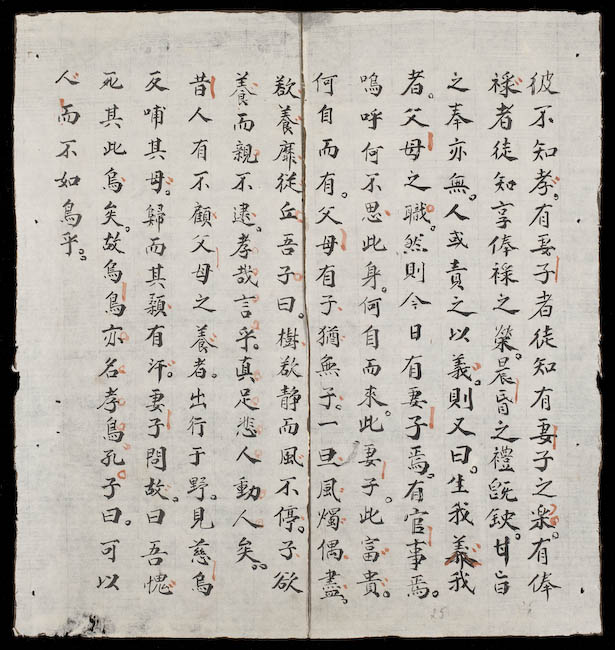 彼不知孝。有妻子者徒知有妻子之楽。有俸
禄者徒知享俸禄之榮。晨昏之禮既缺。甘旨
之奉亦無。人或責之以義。則又曰生我義我
者。父母之職。然則今日有妻子焉。有官事焉。
嗚呼何不思此身。何自而來。此妻子。此富貴。
何自而有。父母有子猶無子。一旦風燭偶盡。
欲養靡從丘吾子曰。樹欲静而風不停。子欲
養而親不逮。孝哉言乎。真足悲人動人矣。
昔人有不顧父母之養者。出行于野。見慈烏
反哺其母。歸而其顙有汗。妻子問故。曰吾愧
死其此烏矣。故烏鳥亦名孝鳥孔子曰。可以
人而不如鳥乎。
25